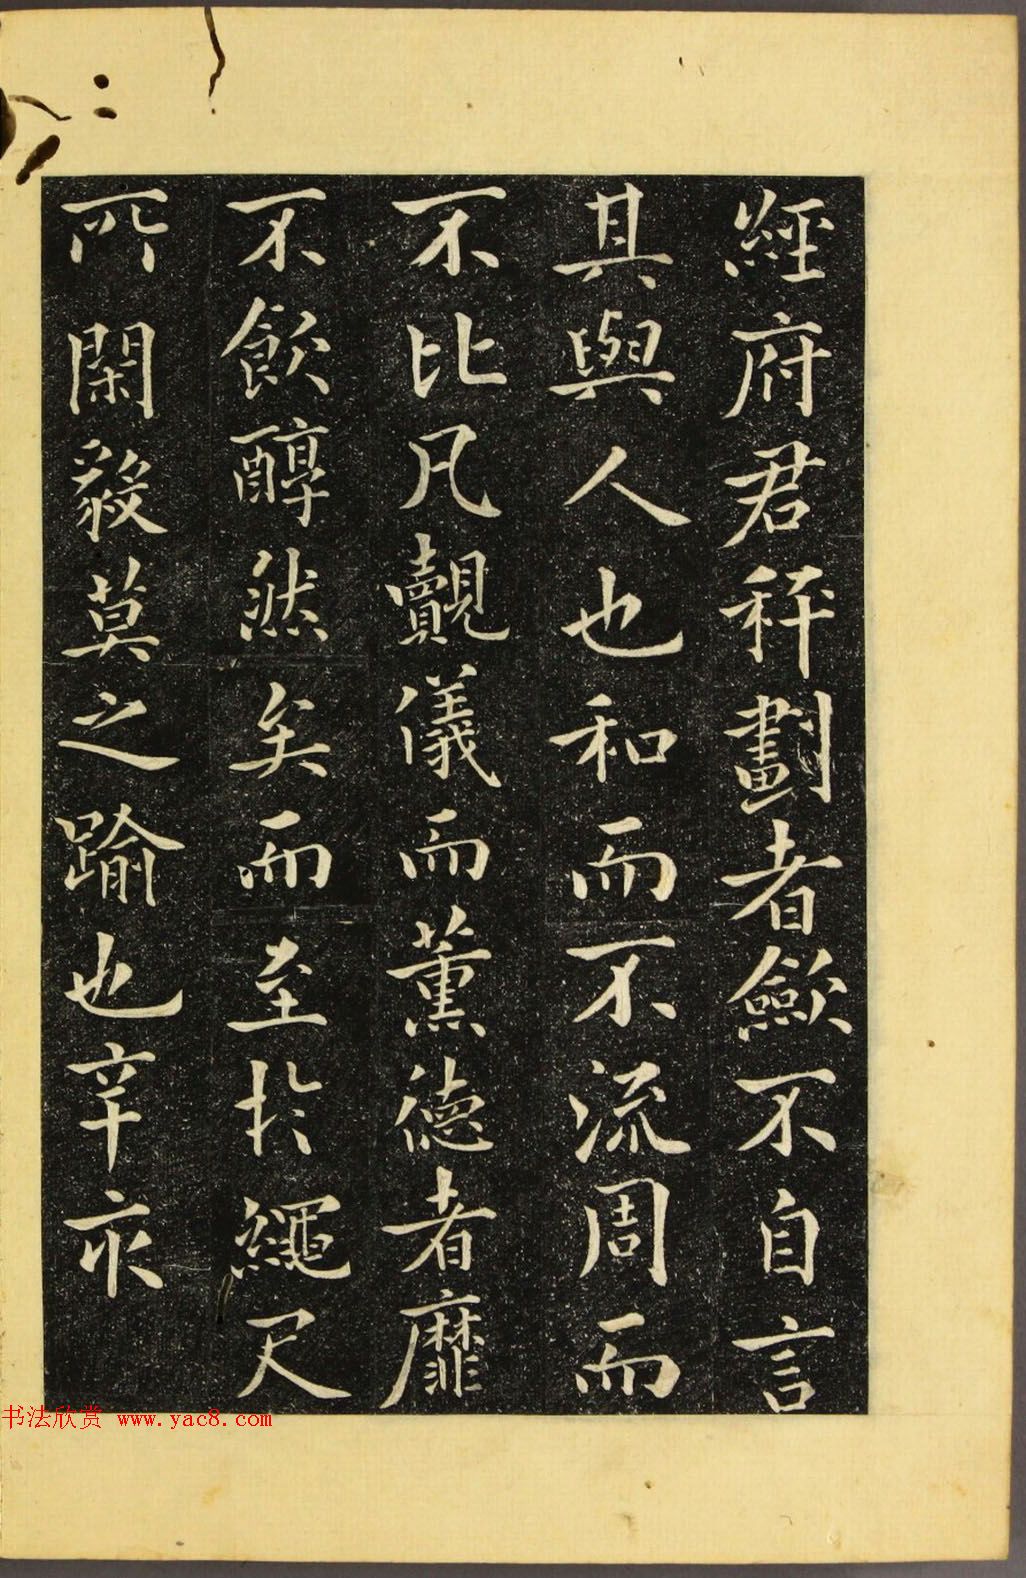 經府君秤劃者歛不自言
其與人也和而不流周而
不比凡覿儀而薰德者靡
不飲醇然矣而至於繩尺
所閑毅莫之踰也辛亥
书法欣赏 www.yac8.com